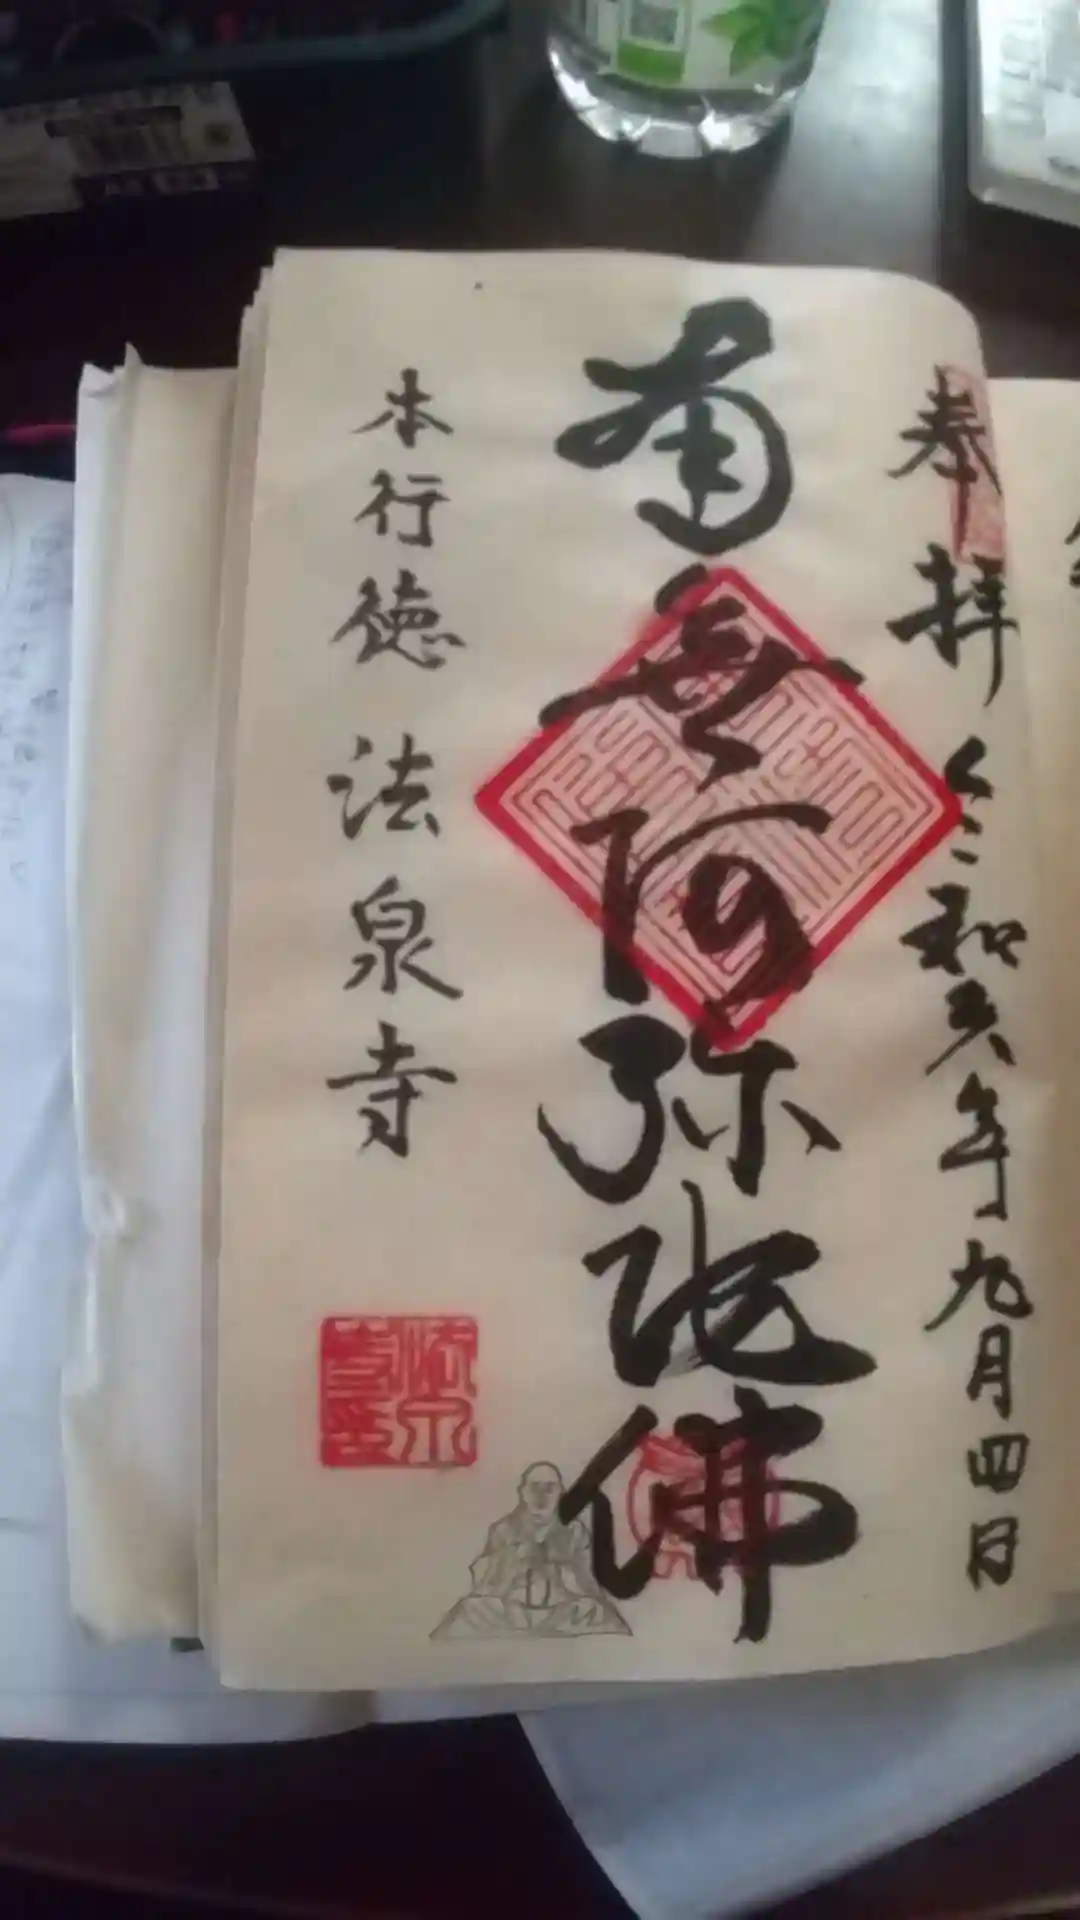 奉拝 令和六年九月四日
南無阿弥陀佛
本行徳 法泉寺